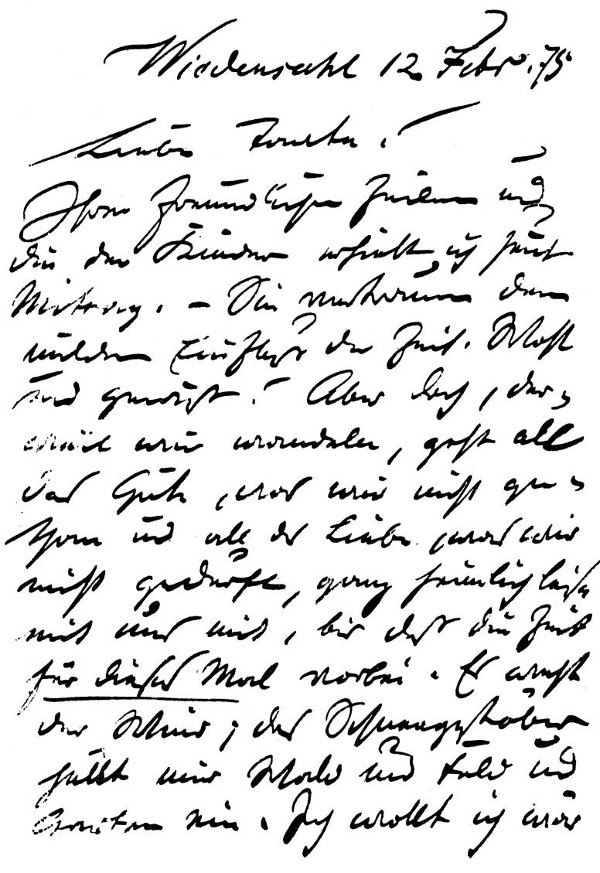 Wiedensahl 12 Febr. 75.
Liebe Tante!
Ihre freundlichen Zeilen und
die der Kinder erhielt ich heut
Mittag. – Sie vertrauen dem
milden Einfluß der Zeit. Wohl
und gewiß! Aber doch, der-
weil wir wandeln, geht all
das Gute, was wir nicht ge-
than und all die Liebe, was wir
nicht gedurft, ganz heimlich leise
mit uns mit, bis daß die Zeit
für dieses Mal vorbei. Es weht
der Wind; das Schneegestöber
hüllt mir Wald und Feld und
Garten ein. Ich wollt ich wär